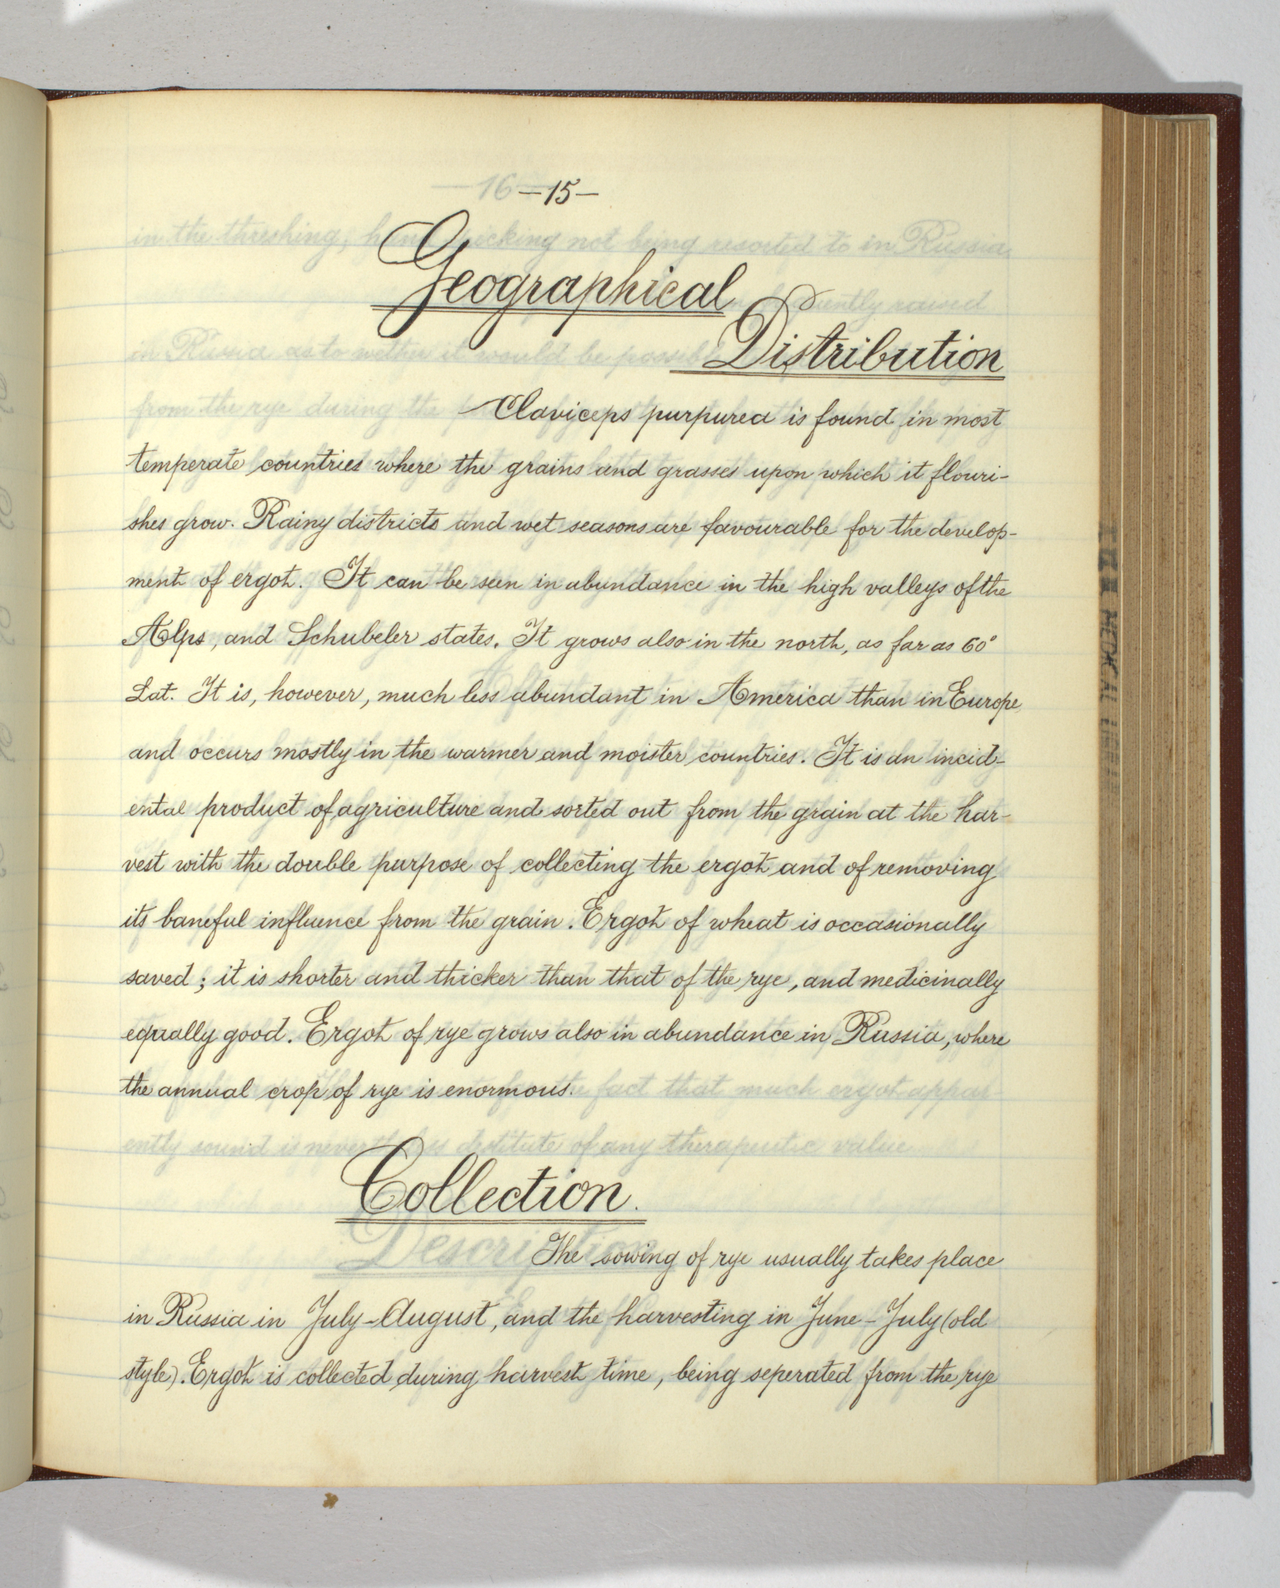 —15—
Geographical
Distribution
Claviceps purpurea is found in most
temperate countries where the grains and grasses upon which it flouri-
shes grow. Rainy districts and wet seasons are favourable for the develop-
ment of ergot. It can be seen in abundance in the high valleys of the
Alps, and Schubeler states. It grows also in the north, as far as 60°
Lat. It is, however, much less abundant in America than in Europe
and occurs mostly in the warmer and moister countries. It is an incid-
ental product of agriculture and sorted out from the grain at the har-
vest with the double purpose of collecting the ergot and of removing
its baneful influence from the grain. Ergot of wheat is occasionally
saved; it is shorter and thicker than that of the rye, and medicinally
equally good. Ergot of rye grows also in abundance in Russia, where
the annual crop of rye is enormous.
Collection.
The sowing of rye usually takes place
in Russia in July-August, and the harvesting in June-July (old
style). Ergot is collected during harvest time, being seperated from the rye